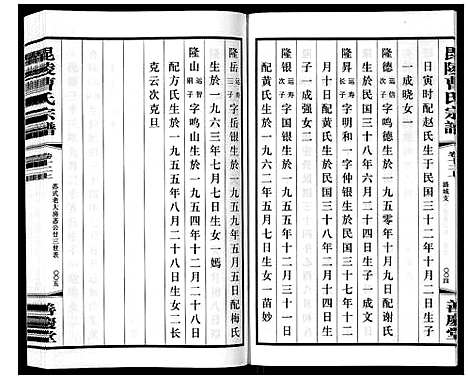 毘陵曹氏宗譜
卷十三上
潞城支
〇〇四
善慶堂
日寅时配赵氏生于民国三十二年十月二日生子
一成晓女一
隆德 远信次子 字生於一九五〇年十月十四日配谢氏
生於民国三十八年六月二十四日生子一成文
隆昇 远寿长子 字明和一字仲银生於民国三十七年十二
月十日配黄氏生於民国三十八年二月十四日生
子一成强女二
隆银 远寿次子 字生於一九五一年十二月十二日
配黄氏生於一九五二年二月八日生女一苗妙
隆岳 远寿三子 字岳银生於一九五九年五月五日配梅氏
生於一九六三年七月七日生女一嫣
隆山 远智嗣子 字鸣山生於一九五四年十二月二十八日
配方氏生於一九五五年八月二十八日生女二长
克云次克旦
毘陵曹氏宗譜
卷十三上
〇〇五
善慶堂